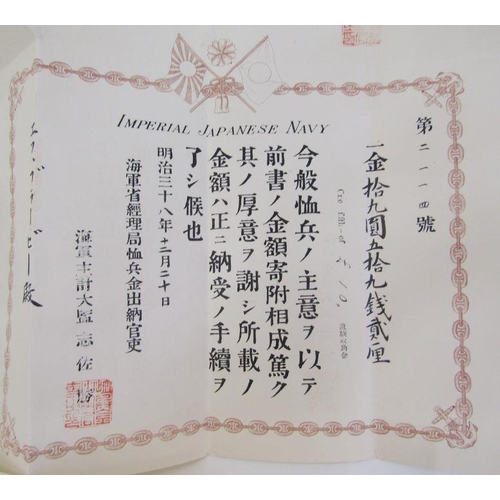 IMPERIAL JAPANESE NAVY
第二一一四號
一金拾九圓五拾九銭貳厘
今般恤兵ノ主意ヲ以テ
前書ノ金額寄附相成篤ク
其ノ厚意ヲ謝シ所載ノ
金額ハ正ニ納受ノ手續ヲ
了シ候也
明治三十八年十二月二十日
海軍省經理局恤兵金出納官吏
海軍主計大監 志佐勝
殿